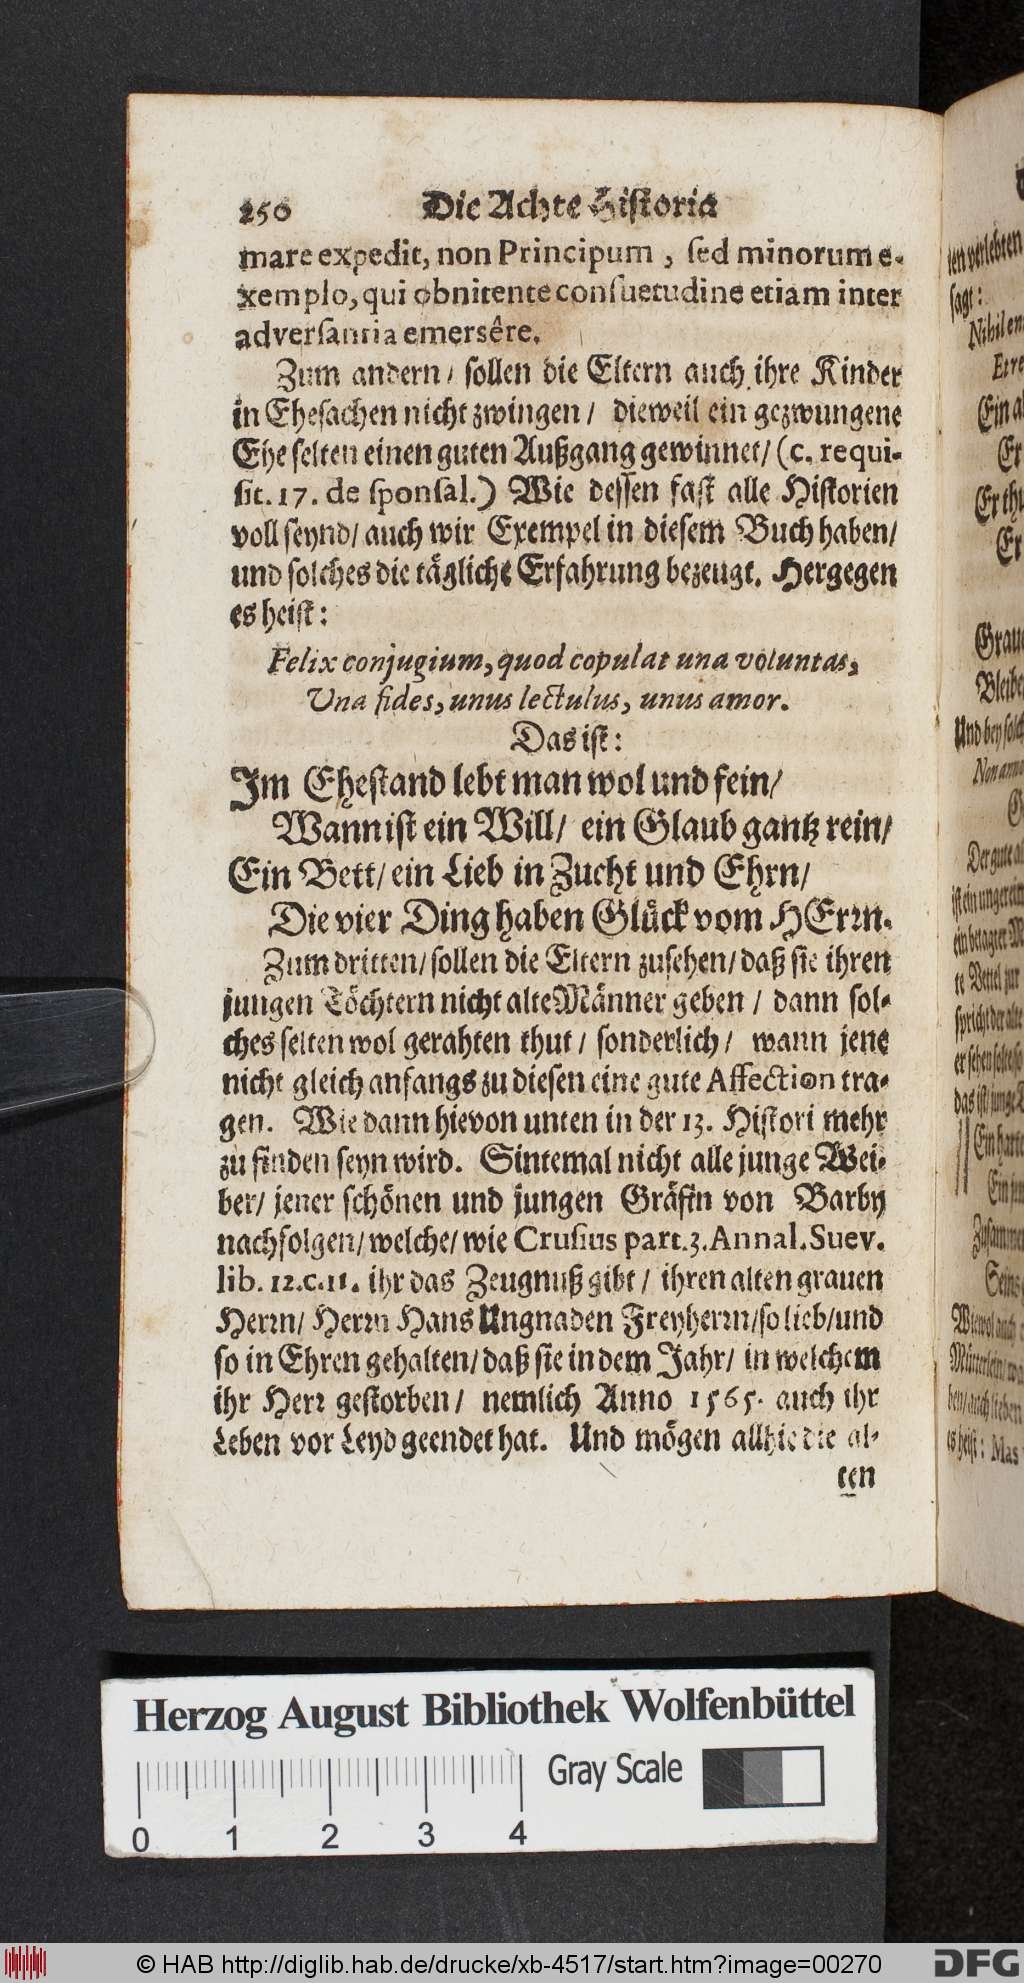 250 Die Achte Historia
mare expedit, non Principum, ſed minorum e-
xemplo, qui obnitente conſuetudine etiam inter
adverſantia emersêre.
Zum andern / sollen die Eltern auch ihre Kinder
in Eheſachen nicht zwingen / dieweil ein gezwungene
Ehe ſelten einen guten Außgang gewinnet / (c. requi-
ſit. 17. de ſponſal.) Wie deſſen faſt alle Hiſtorien
voll ſeynd / auch wir Exempel in dieſem Buch haben /
und ſolches die tägliche Erfahrung bezeugt. Hergegen
es heiſt:
Felix conjugium, quod copulat una voluntas,
Una fides, unus lectulus, unus amor.
Das iſt:
Im Eheſtand lebt man wol und fein /
Wann iſt ein Will / ein Glaub gantz rein /
Ein Bett / ein Lieb in Zucht und Ehrn /
Die vier Ding haben Glück vom HErrn.
Zum dritten / ſollen die Eltern zuſehen / daß ſie ihren
jungen Töchtern nicht alte Männer geben / dann ſol-
ches ſelten wol gerahten thut / ſonderlich / wann jene
nicht gleich anfangs zu dieſen eine gute Affection tra-
gen. Wie dann hievon unten in der 13. Hiſtori mehr
zu finden ſeyn wird. Sintemal nicht alle junge Wei-
ber / jener ſchönen und jungen Gräfin von Barby
nachfolgen / welche / wie Cruſius part. 3. Annal. Suev.
lib. 12. c. 11. ihr das Zeugnuß gibt / ihren alten grauen
Herrn / Herrn Hans Ungnaden Freyherrn / ſo lieb / und
ſo in Ehren gehalten / daß ſie in dem Jahr / in welchem
ihr Herr geſtorben / nemlich Anno 1565. auch ihr
Leben vor Leyd geendet hat. Und mögen allhie die al-
ten
ten verlebten
ſagt:
Nihil
Ein
Er
Er
Bleibe
Und bey
Der gute
Zuſammen
Seins
Wiewol auch
es heiſt: Mas
Herzog August Bibliothek Wolfenbüttel
Gray Scale
0 1 2 3 4
© HAB http://diglib.hab.de/drucke/xb-4517/start.htm?image=00270
DFG